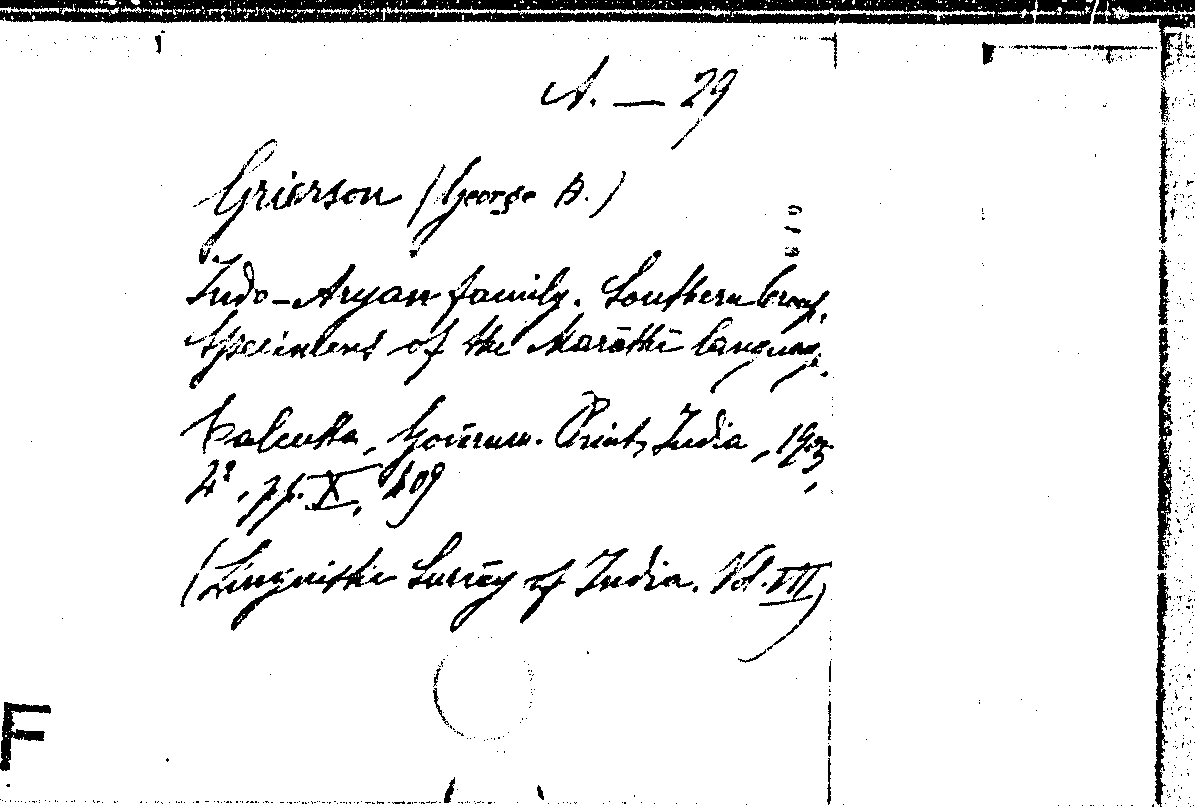 A. — 29
Grierson (George A.)
Indo-Aryan family. Southern Group.
Specimens of the Marāthī language.
Calcutta, Governm. Print, India, 1905,
4°, pp. X, 409
(Linguistic Survey of India. Vol. VII)
F